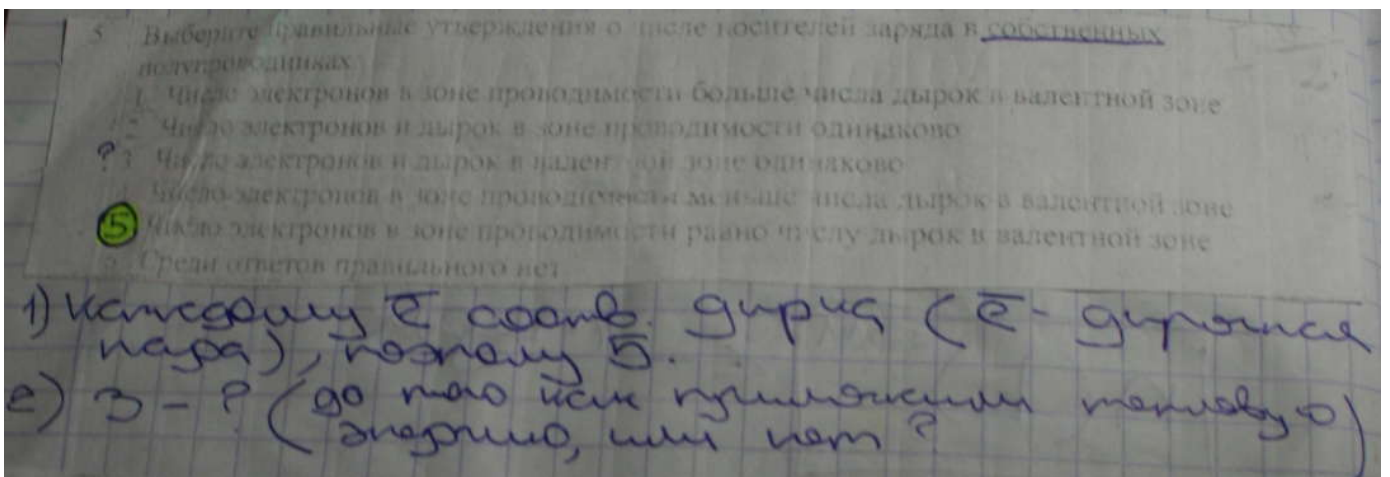 5 Выберите правильные утверждения о числе носителей заряда в собственных
полупроводниках
1. Число электронов в зоне проводимости больше числа дырок в валентной зоне
2. Число электронов и дырок в зоне проводимости одинаково
? 3. Число электронов и дырок в валентной зоне одинаково
4. Число электронов в зоне проводимости меньше числа дырок в валентной зоне
5 Число электронов в зоне проводимости равно числу дырок в валентной зоне
6. Среди ответов правильного нет
1) Каждому ē соотв. дырка (ē- дырочная
пара), поэтому 5.
2) 3 - ? (до того как приложили тепловую
энергию, или нет ?)